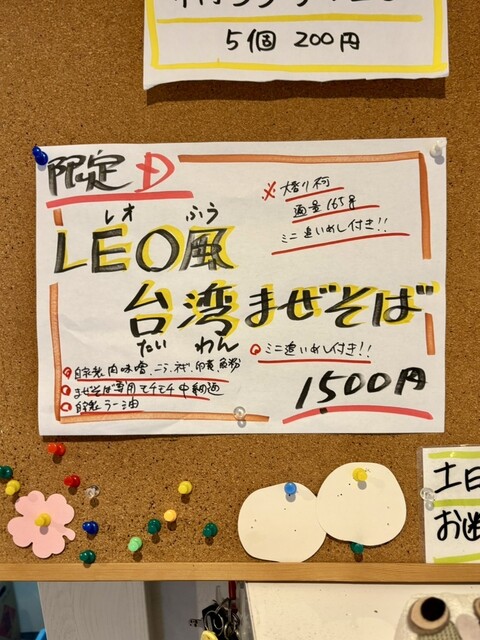 5個 200円
限定 D
※大盛り不可
麺量165g
ミニ追いめし付き!!
レオ ふう
LEO風
台湾まぜそば
たい わん
ミニ追いめし付き!!
自家製肉味噌、ニラ、ネギ、卵黄、魚粉
まぜそば専用モチモチ中太麺
自家製ラー油
1,500円
土日
お